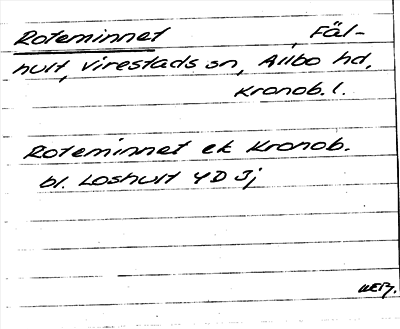 Roteminnet Fäl-
hult, Virestads sn, Allbo hd,
Kronob. l.
Roteminnet ek Kronob.
bl. Loshult 4D 3j